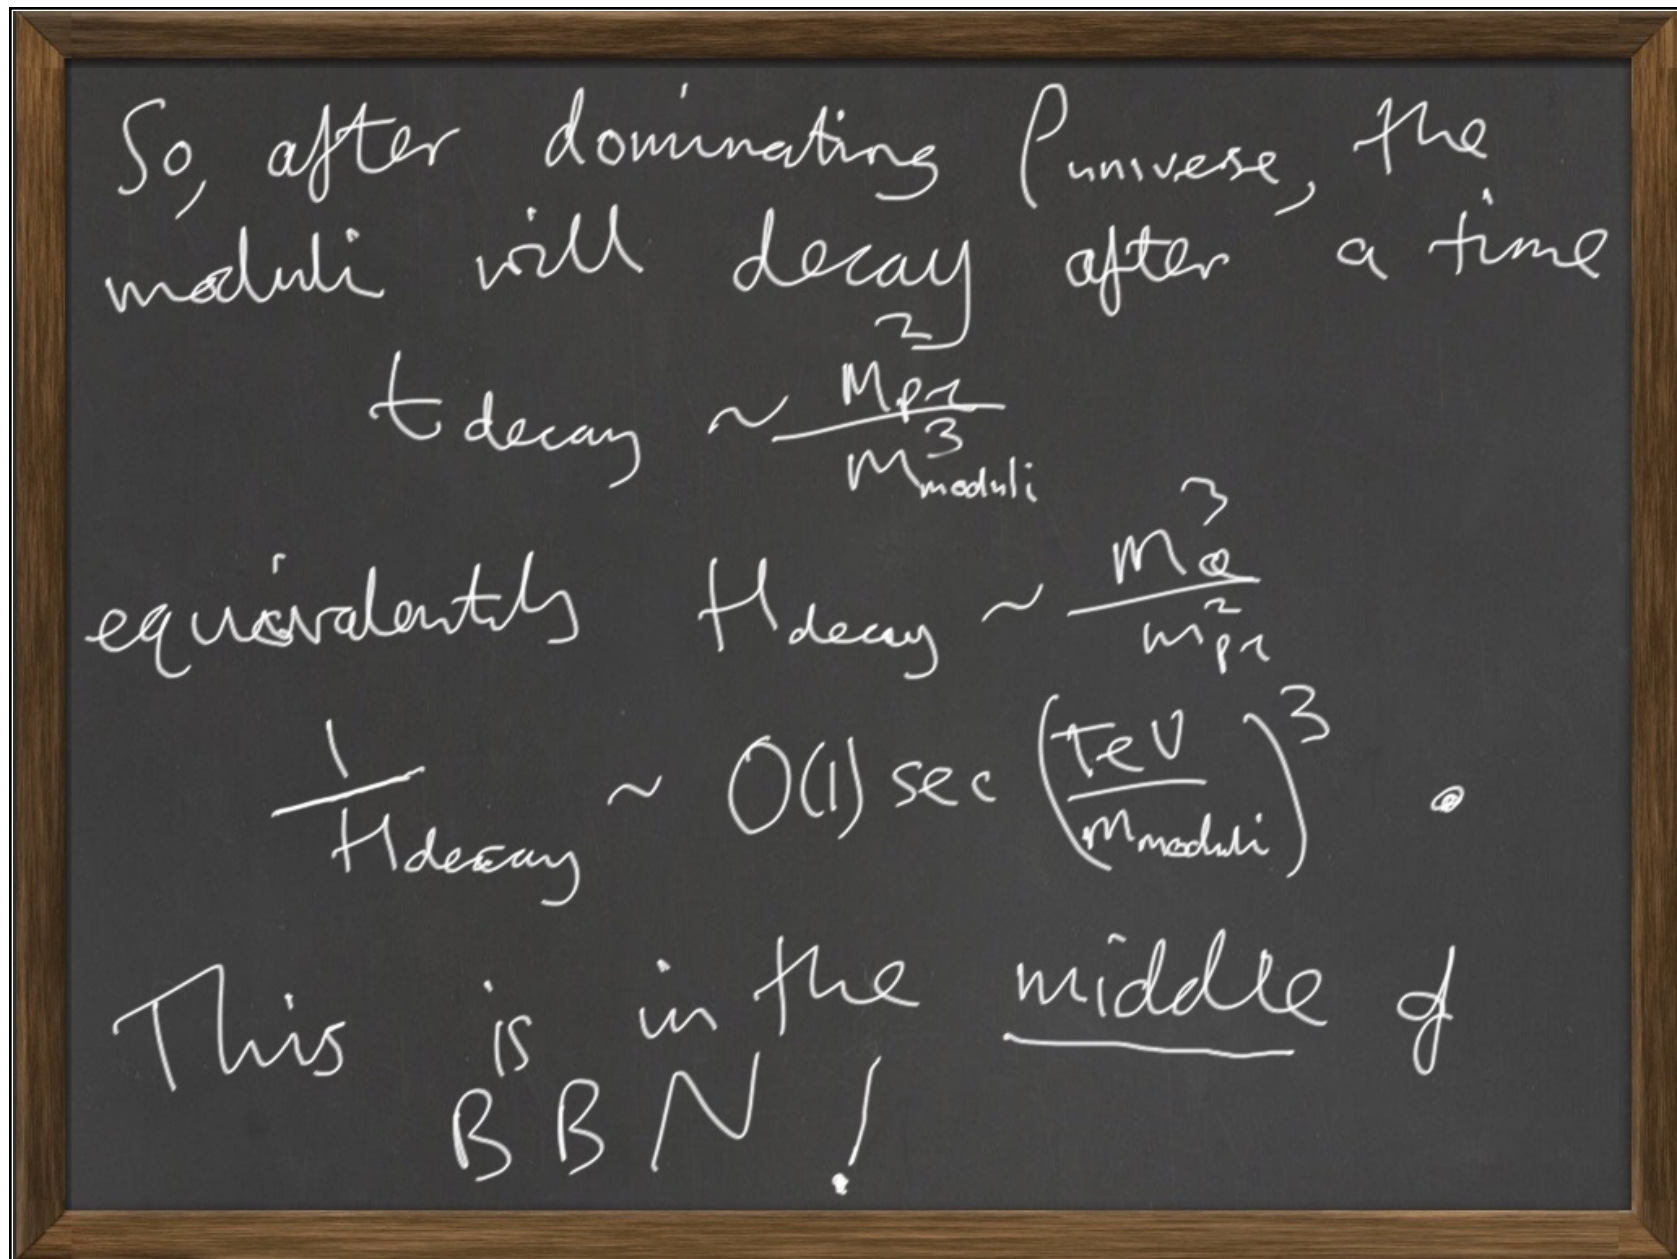 So, after dominating ρ_universe, the
moduli will decay after a time
t_decay ~ m_pl^2 / m_moduli^3
equivalently H_decay ~ m_Φ^3 / m_pl^2
1 / H_decay ~ O(1) sec (TeV / m_moduli)^3 .
This is in the middle of
BBN!